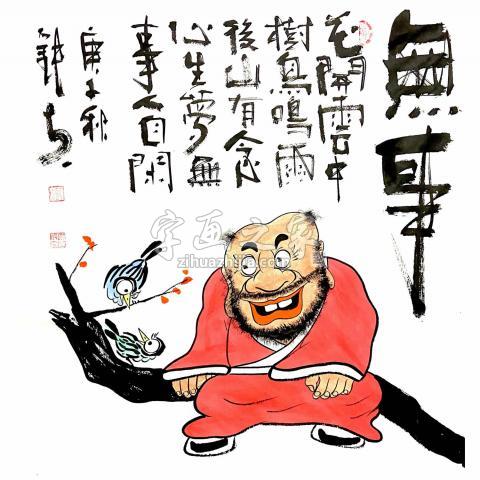 無事
花開雲中
樹鳥鳴雨
後山有念
心生夢無
事人自閑
庚子秋
字画之家
zihuazhijia.com